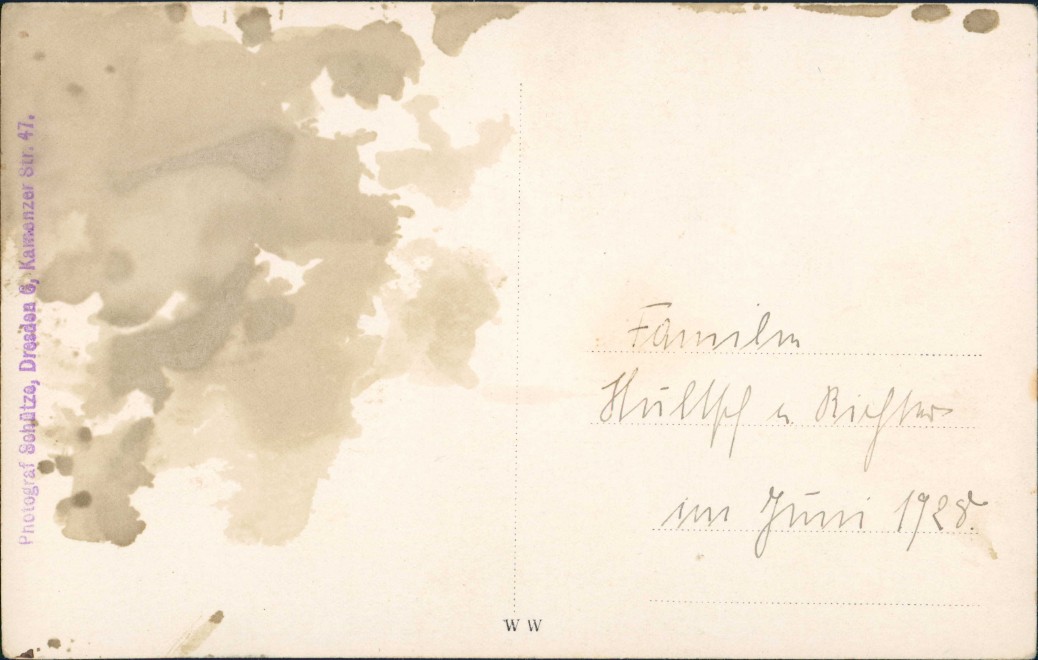 Photograf Schütze, Dresden 6, Kamenzer Str. 47.
Familie
Hultsch u. Richter
im Juni 1928.
W W